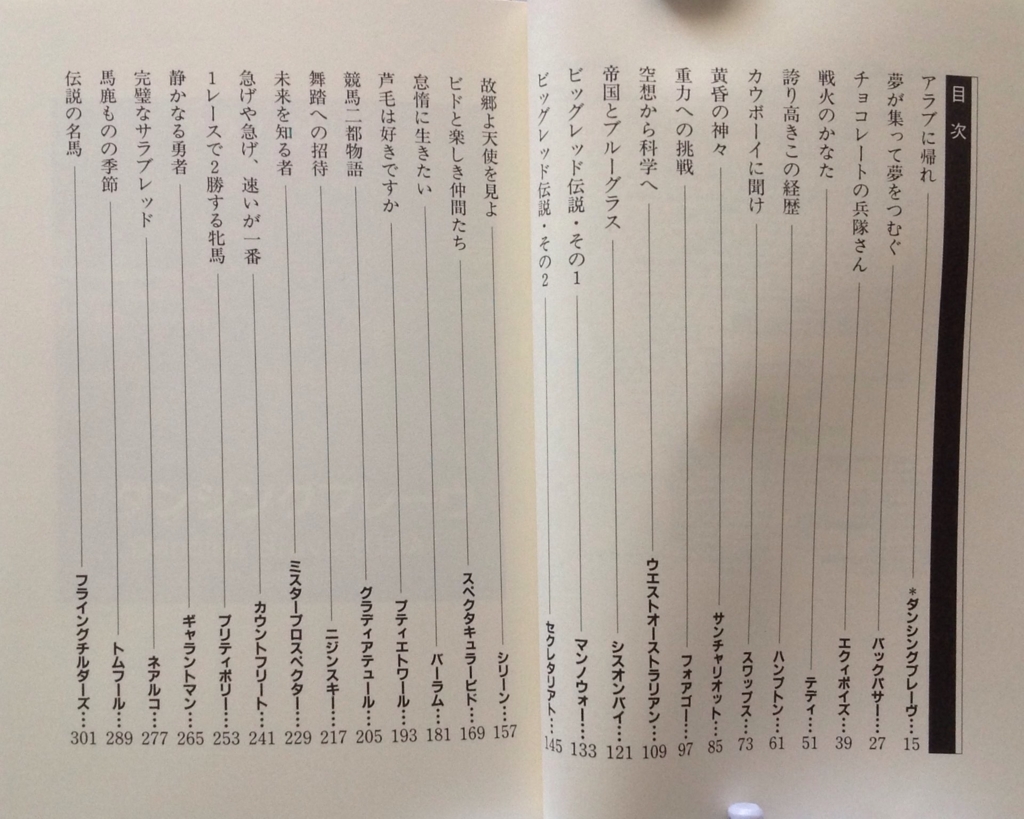 目次
アラブに帰れ *ダンシングブレーヴ…15
夢が集って夢をつむぐ バックパサー…27
チョコレートの兵隊さん エクィポイズ…39
戦火のかなた テディ…51
誇り高きこの経歴 ハンプトン…61
カウボーイに聞け スワップス…73
黄昏の神々 サンチャリオット…85
重力への挑戦 フォアゴー…97
空想から科学へ ウエストオーストラリアン…109
帝国とブルーグラス シスオンバイ…121
ビッグレッド伝説・その1 マンノウォー…133
ビッグレッド伝説・その2 セクレタリアト…145
故郷よ天使を見よ シリーン…157
ビドと楽しき仲間たち スペクタキュラービド…169
怠惰に生きたい バーラム…181
芦毛は好きですか プティエトワール…193
競馬二都物語 グラディアテュール…205
舞踏への招待 ニジンスキー…217
未来を知る者 ミスタープロスペクター…229
急げや急げ、速いが一番 カウントフリート…241
1レースで2勝する牝馬 プリティポリー…253
静かなる勇者 ギャラントマン…265
完璧なサラブレッド ネアルコ…277
馬鹿ものの季節 トムフール…289
伝説の名馬 フライングチルダーズ…301